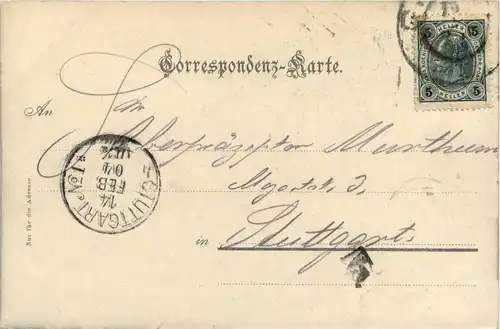 Correspondenz-Karte.
5 HELLER 5
5 HELLER 5
An
Oberpräzeptor Murthum
Mozartstr. 3,
in Stuttgart
STUTTGART No 1
14
FEB
04
Nur für die Adresse.